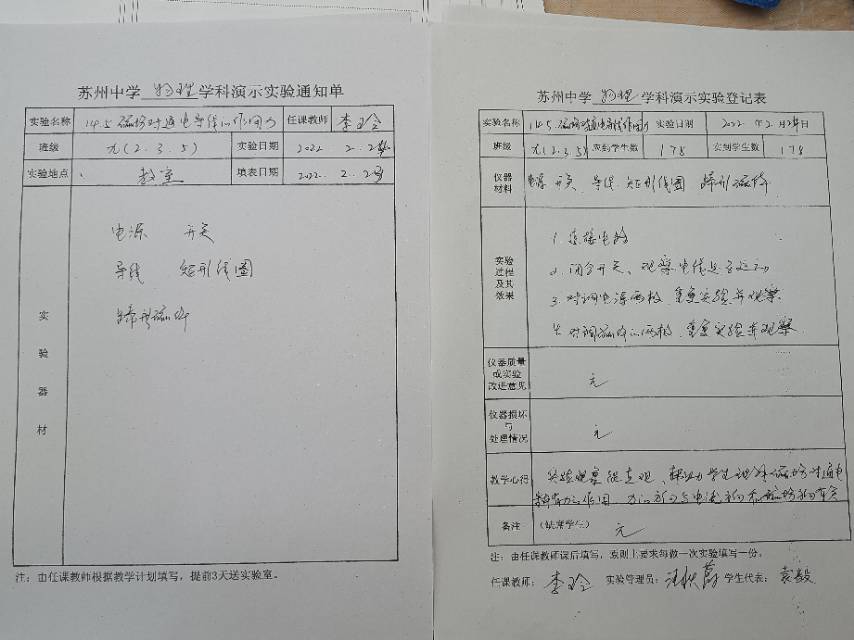 苏州中学 物理 学科演示实验通知单
实验名称 14.5 磁场对通电导线的作用力 任课教师 李玲
班级 九(2.3.5) 实验日期 2022 2.
实验地点 教室 填表日期 2022. 2.
实验器材
电源 开关
导线 矩形线圈
蹄形磁体
注：由任课教师根据教学计划填写，提前3天送实验室。
苏州中学 物理 学科演示实验登记表
实验名称 14.5 磁场对通电导线的作用力 实验日期 2022 年 2 月 日
班级 九(2.3.5) 应到学生数 178 实到学生数 178
仪器材料 电源 开关、导线、矩形线圈 蹄形磁体
实验过程及其效果
1. 连接电路
2. 闭合开关、观察
3. 对调电源两极 重复实验并观察
4. 对调磁体的两极、重复实验并观察
仪器质量或实验改进意见 无
仪器损坏与处理情况 无
教学心得 实验现象很直观、 学生理解磁场对通电
导线有力的作用 力的方向与电流方向和磁场方向有关
备注 (缺席学生) 无
注：由任课教师课后填写，原则上要求每做一次实验填写一份。
任课教师： 李玲 实验管理员： 学生代表： 袁毅